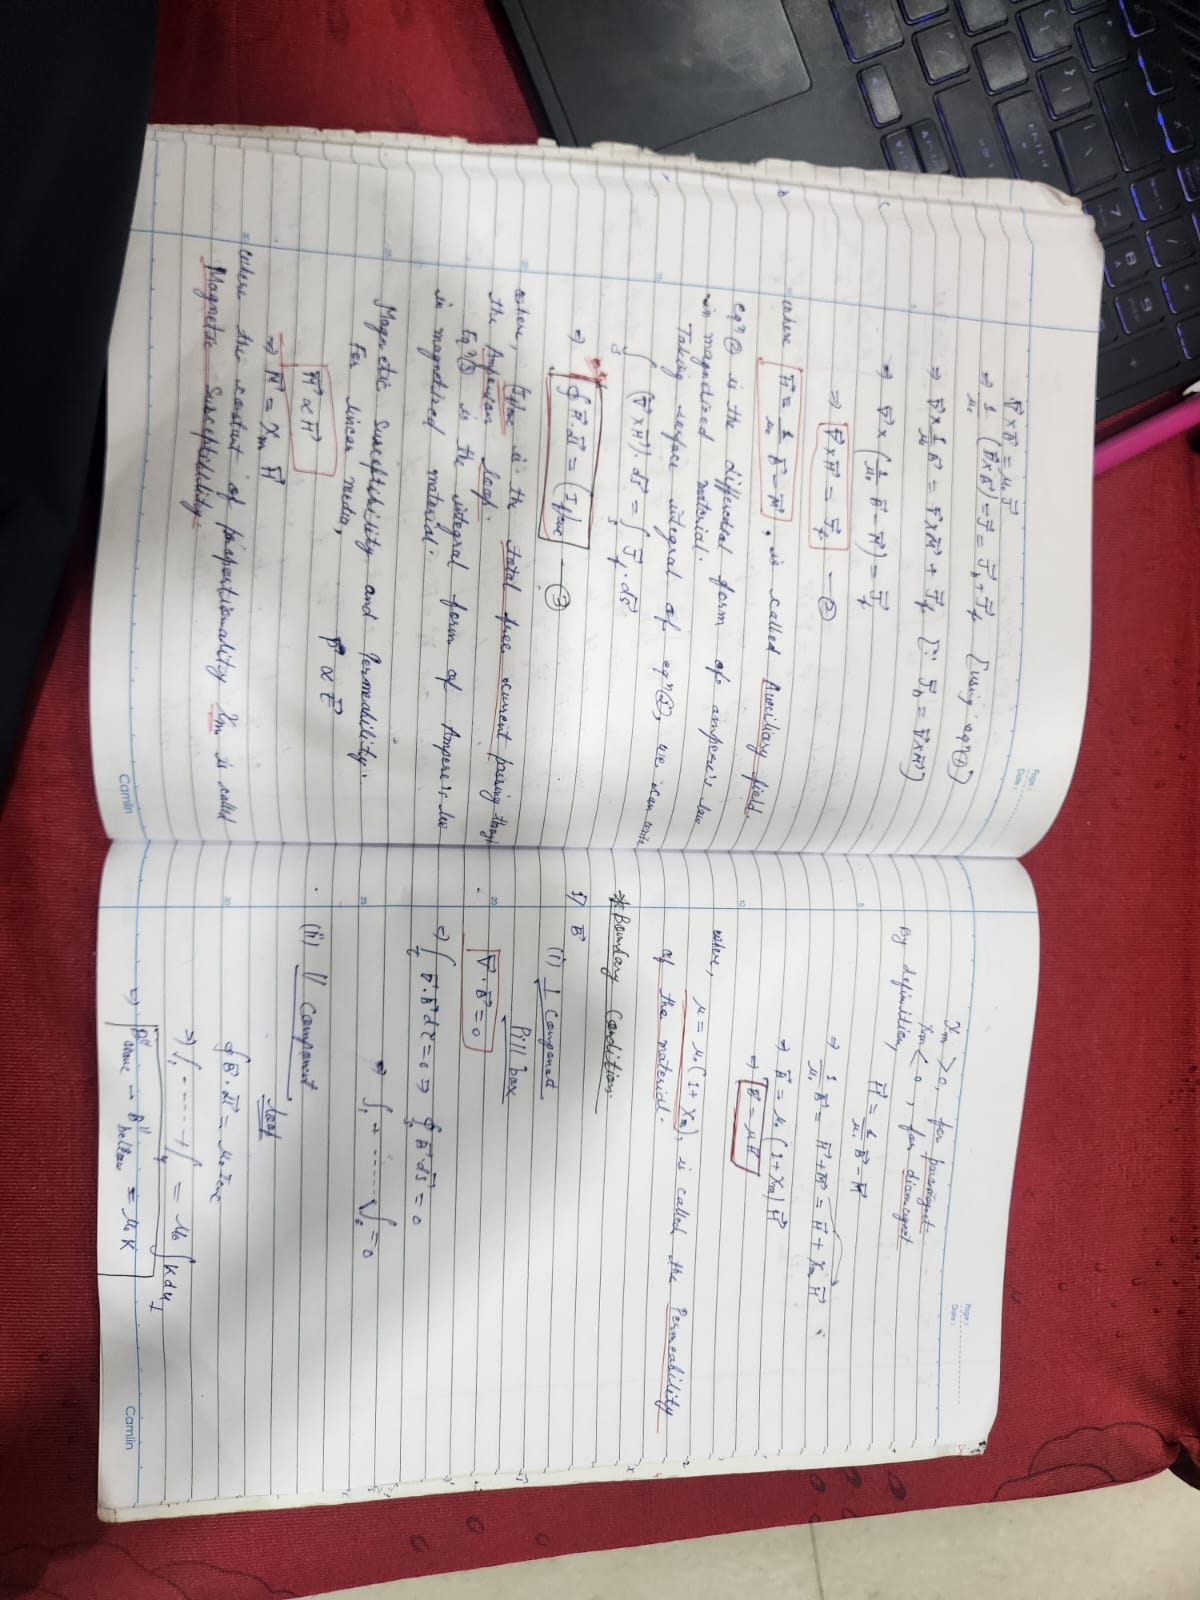 Page :
Date :
∇⃗ × B⃗ = μ₀ J⃗
⇒ 1/μ₀ (∇⃗ × B⃗) = J⃗ = J⃗b + J⃗f [using eqⁿ ①]
⇒ ∇⃗ × 1/μ₀ B⃗ = ∇⃗ × M⃗ + J⃗f [∵ J⃗b = ∇⃗ × M⃗]
⇒ ∇⃗ × (1/μ₀ B⃗ - M⃗) = J⃗f
⇒ ∇⃗ × H⃗ = J⃗f — ②
where H⃗ = 1/μ₀ B⃗ - M⃗, is called Auxiliary field.
eqⁿ ② is the differential form of ampere's law
in magnetized material.
Taking surface integral of eqⁿ ②, we can write
∫s (∇⃗ × H⃗) · ds⃗ = ∫s J⃗f · ds⃗
⇒ ∮ H⃗ · dl⃗ = (If)enc — ③
where, (If)enc is the total free current passing through
the Amperian loop.
Eqⁿ ③ is the integral form of Ampere's law
in magnetized material.
Magnetic Susceptibility and Permeability :
For linear media,
P⃗ ∝ E⃗
M⃗ ∝ H⃗
⇒ M⃗ = χm H⃗
where the constant of proportionality χm is called
Magnetic Susceptibility.
Camlin
Page :
Date :
χm > 0, for paramagnet
χm < 0, for diamagnet
By definition, H⃗ = 1/μ₀ B⃗ - M⃗
⇒ 1/μ₀ B⃗ = H⃗ + M⃗ = H⃗ + χm H⃗
⇒ B⃗ = μ₀ (1 + χm) H⃗
⇒ B⃗ = μ H⃗
where,
μ = μ₀ (1 + χm), is called the Permeability
of the material.
* Boundary Condition:
1) B⃗
(i) ⊥ Componend
Pill box
∇⃗ · B⃗ = 0
⇒ ∫ ∇⃗ · B⃗ dτ = 0 ⇒ ∮ B⃗ · ds⃗ = 0
⇒ ∫₁ + ...... ∫₆ = 0
(ii) || Component
loop
∮ B⃗ · dl⃗ = μ₀ Ienc
⇒ ∫₁ ..... + ∫₄ = μ₀ ∫ K dl⊥
⇒ B|| above - B|| bellow = μ₀ K
Camlin